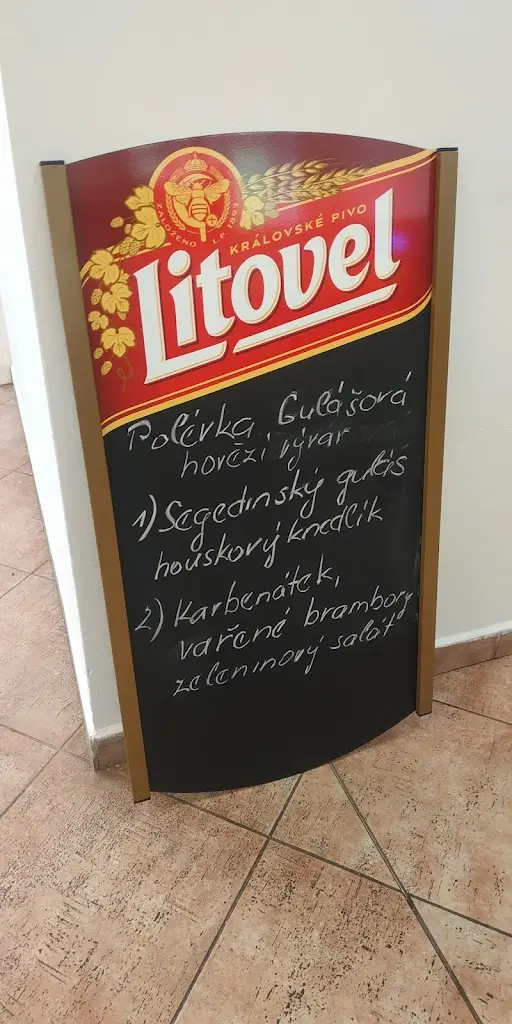 ZALOŽENO L.P. 1893
KRÁLOVSKÉ PIVO
Litovel
Polévka Gulášová
hovězí vývar
1) Segedínský guláš
houskový knedlík
2) Karbenátek,
vařené brambory
zeleninový salát